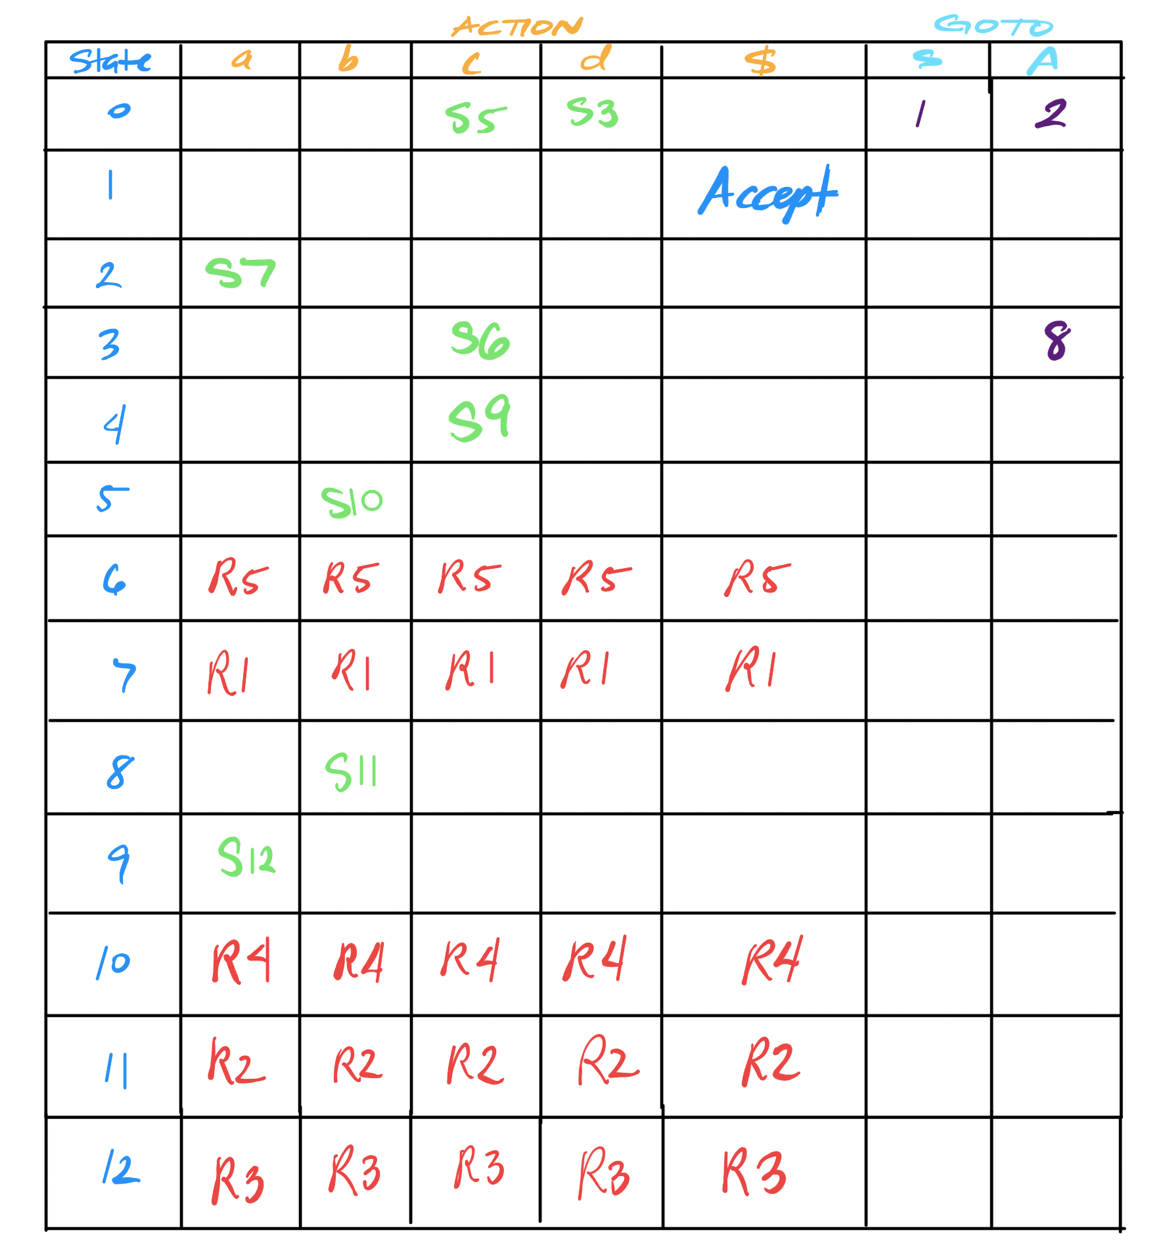 ACTION GOTO
State a b c d $ S A
0 S5 S3 1 2
1 Accept
2 S7
3 S6 8
4 S9
5 S10
6 R5 R5 R5 R5 R5
7 R1 R1 R1 R1 R1
8 S11
9 S12
10 R4 R4 R4 R4 R4
11 R2 R2 R2 R2 R2
12 R3 R3 R3 R3 R3